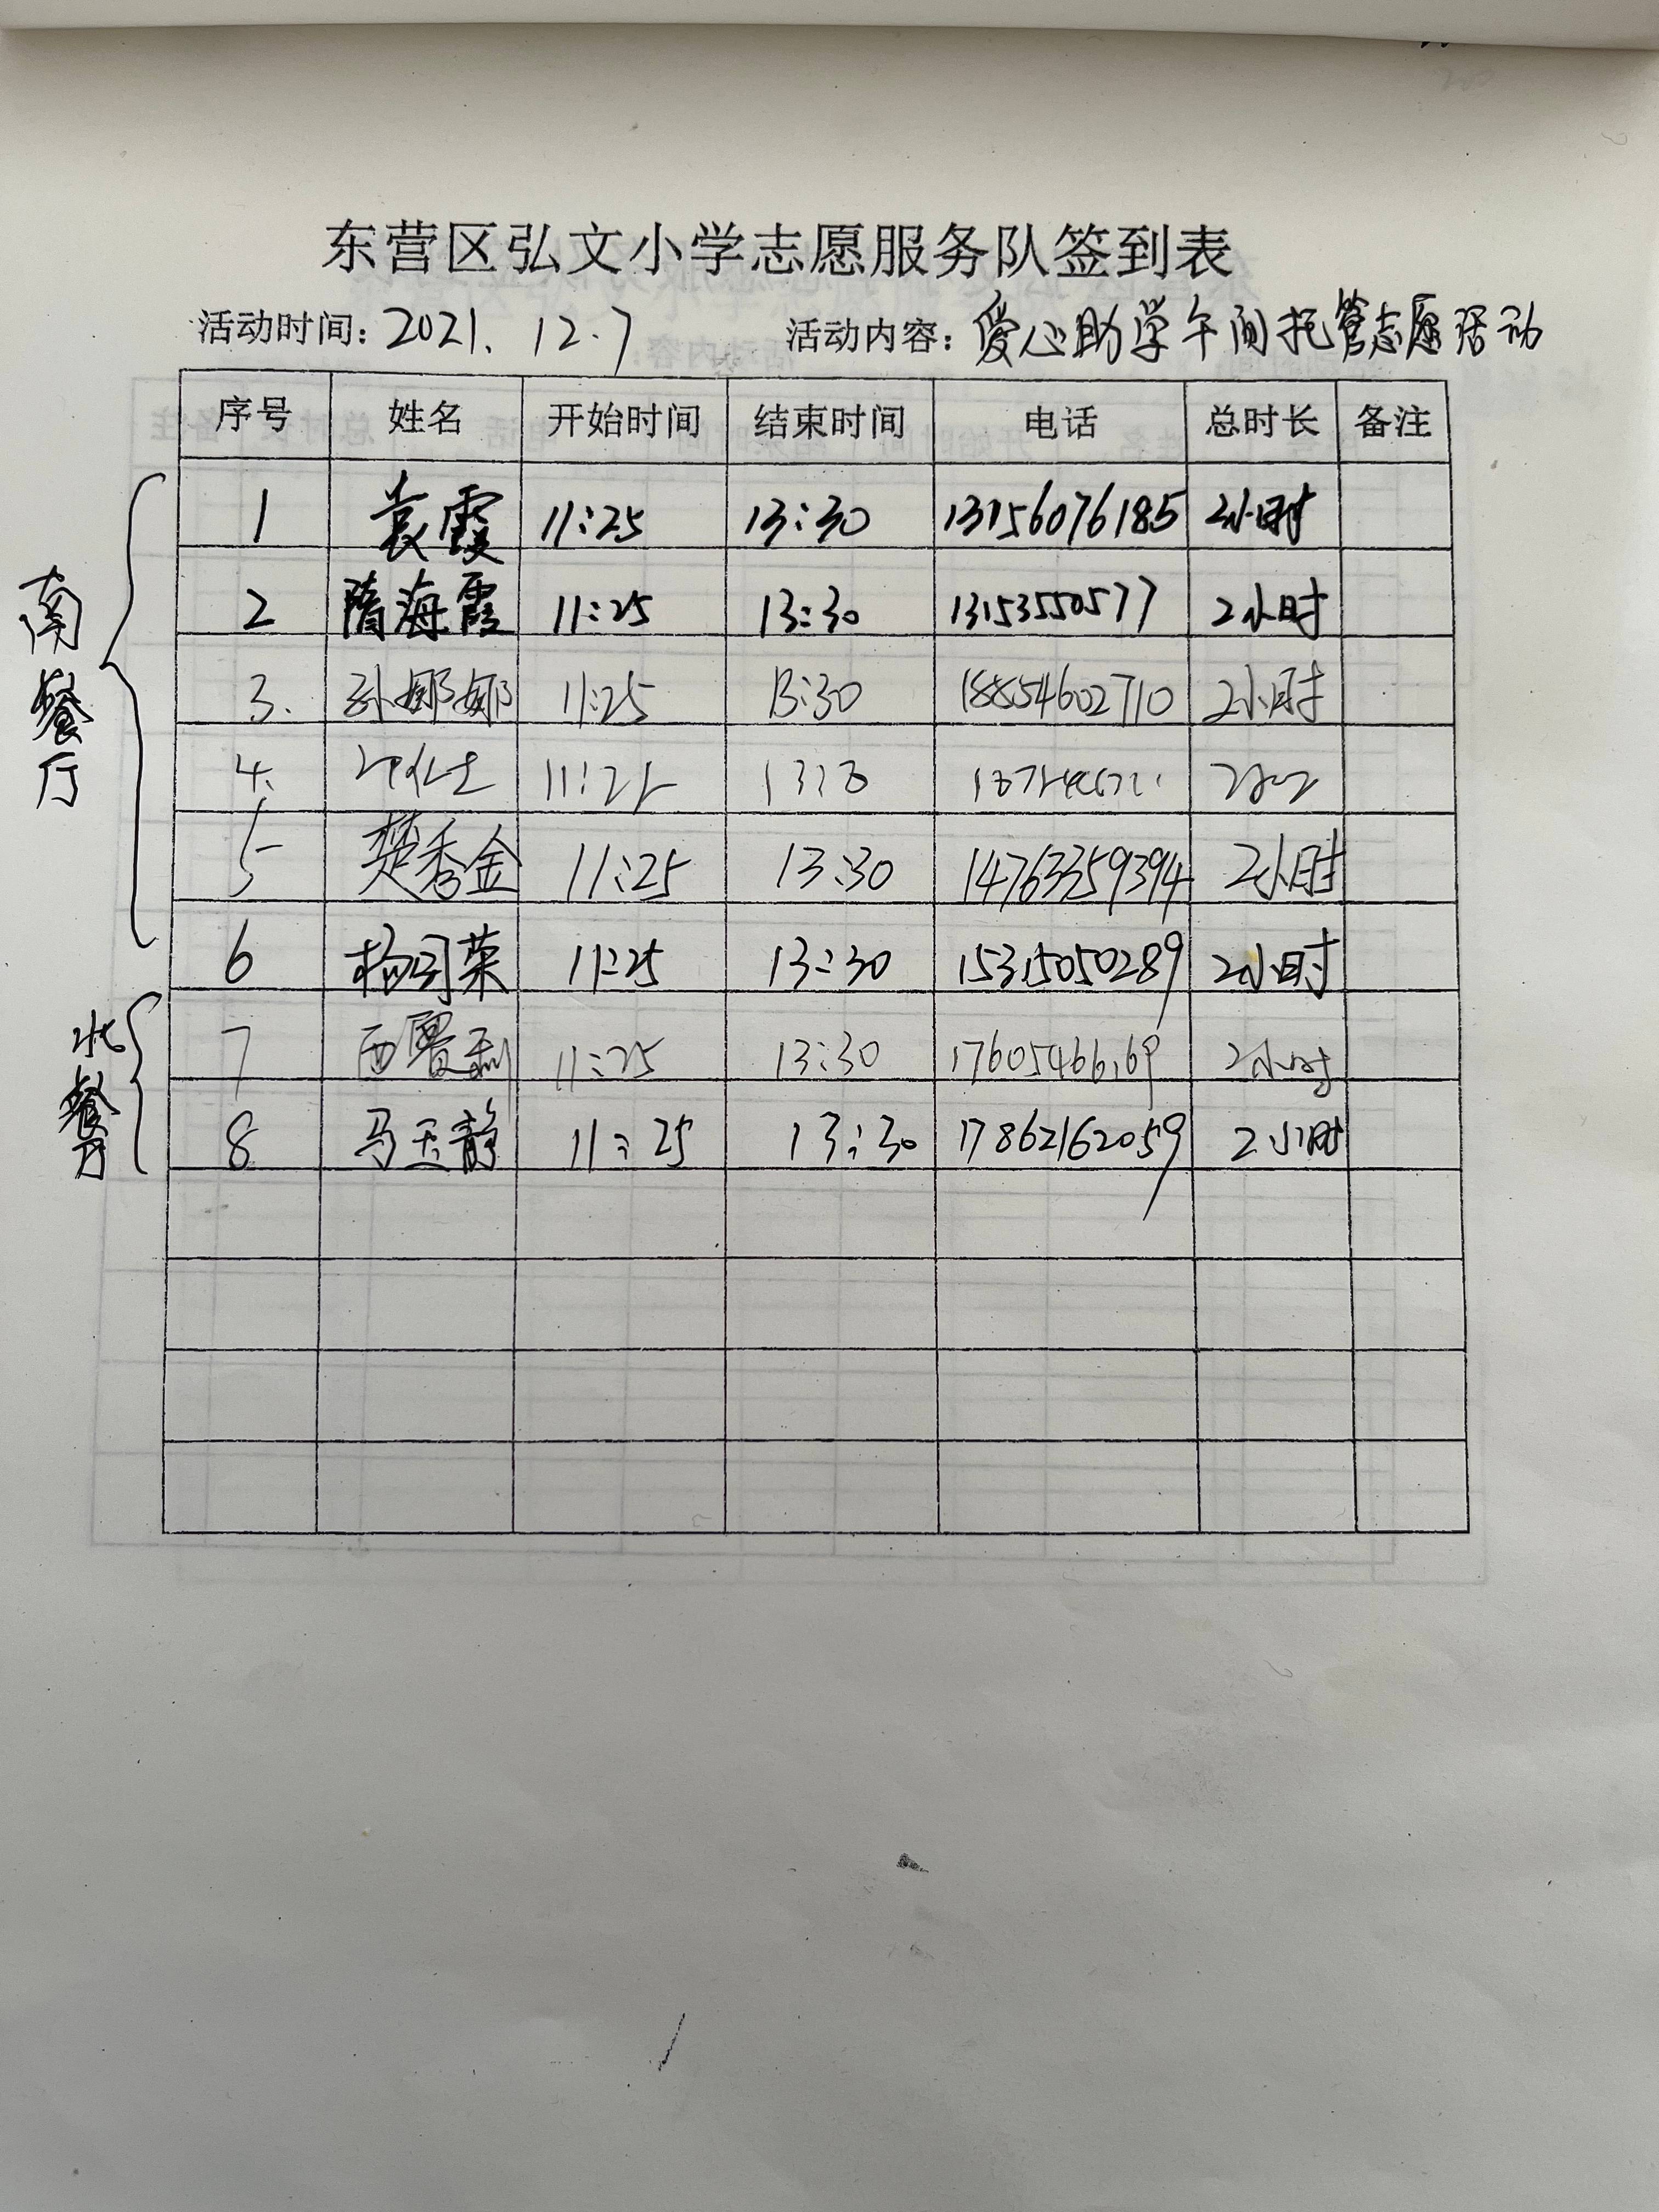 东营区弘文小学志愿服务队签到表
活动时间:2021.12.7 活动内容:爱心助学午间托管志愿活动
序号 姓名 开始时间 结束时间 电话 总时长 备注
南餐厅
1 袁霞 11:25 13:30 13156076185 2小时
2 隋海霞 11:25 13:30 13153550577 2小时
3. 孙娜娜 11:25 13:30 18854602710 2小时
4.
5 楚秀金 11:25 13:30 14763359394 2小时
6 11:25 13:30 15315050289 2小时
北餐厅
7 11:25 13:30 2小时
8 马玉静 11:25 13:30 17862162059 2小时